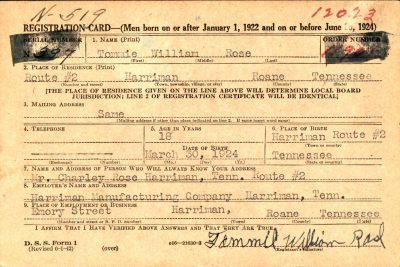 N-519
12023
REGISTRATION CARD—(Men born on or after January 1, 1922 and on or before June 30, 1924)
SERIAL NUMBER
1. NAME (Print)
ORDER NUMBER
Tommie William Rose
(First) (Middle) (Last)
2. PLACE OF RESIDENCE (Print)
Route #2 Harriman Roane Tennessee
(Number and street) (Town, township, village, or city) (County) (State)
[THE PLACE OF RESIDENCE GIVEN ON THE LINE ABOVE WILL DETERMINE LOCAL BOARD
JURISDICTION; LINE 2 OF REGISTRATION CERTIFICATE WILL BE IDENTICAL]
3. MAILING ADDRESS
Same
[Mailing address if other than place indicated on line 2. If same insert word same]
4. TELEPHONE
5. AGE IN YEARS
6. PLACE OF BIRTH
18
Harriman Route #2
DATE OF BIRTH
(Town or county)
March 30, 1924
Tennessee
(Exchange) (Number)
(Mo.) (Day) (Yr.)
(State or country)
7. NAME AND ADDRESS OF PERSON WHO WILL ALWAYS KNOW YOUR ADDRESS
Mr. Charley Rose Harriman, Tenn. Route #2
8. EMPLOYER'S NAME AND ADDRESS
Harriman Manufacturing Company Harriman, Tenn.
9. PLACE OF EMPLOYMENT OR BUSINESS
Emory Street Harriman, Roane Tennessee
(Number and street or R. F. D. number) (Town) (County) (State)
I AFFIRM THAT I HAVE VERIFIED ABOVE ANSWERS AND THAT THEY ARE TRUE.
D. S. S. Form 1
(Revised 6-9-42) (over)
Tommie William
(Registrant's signature)